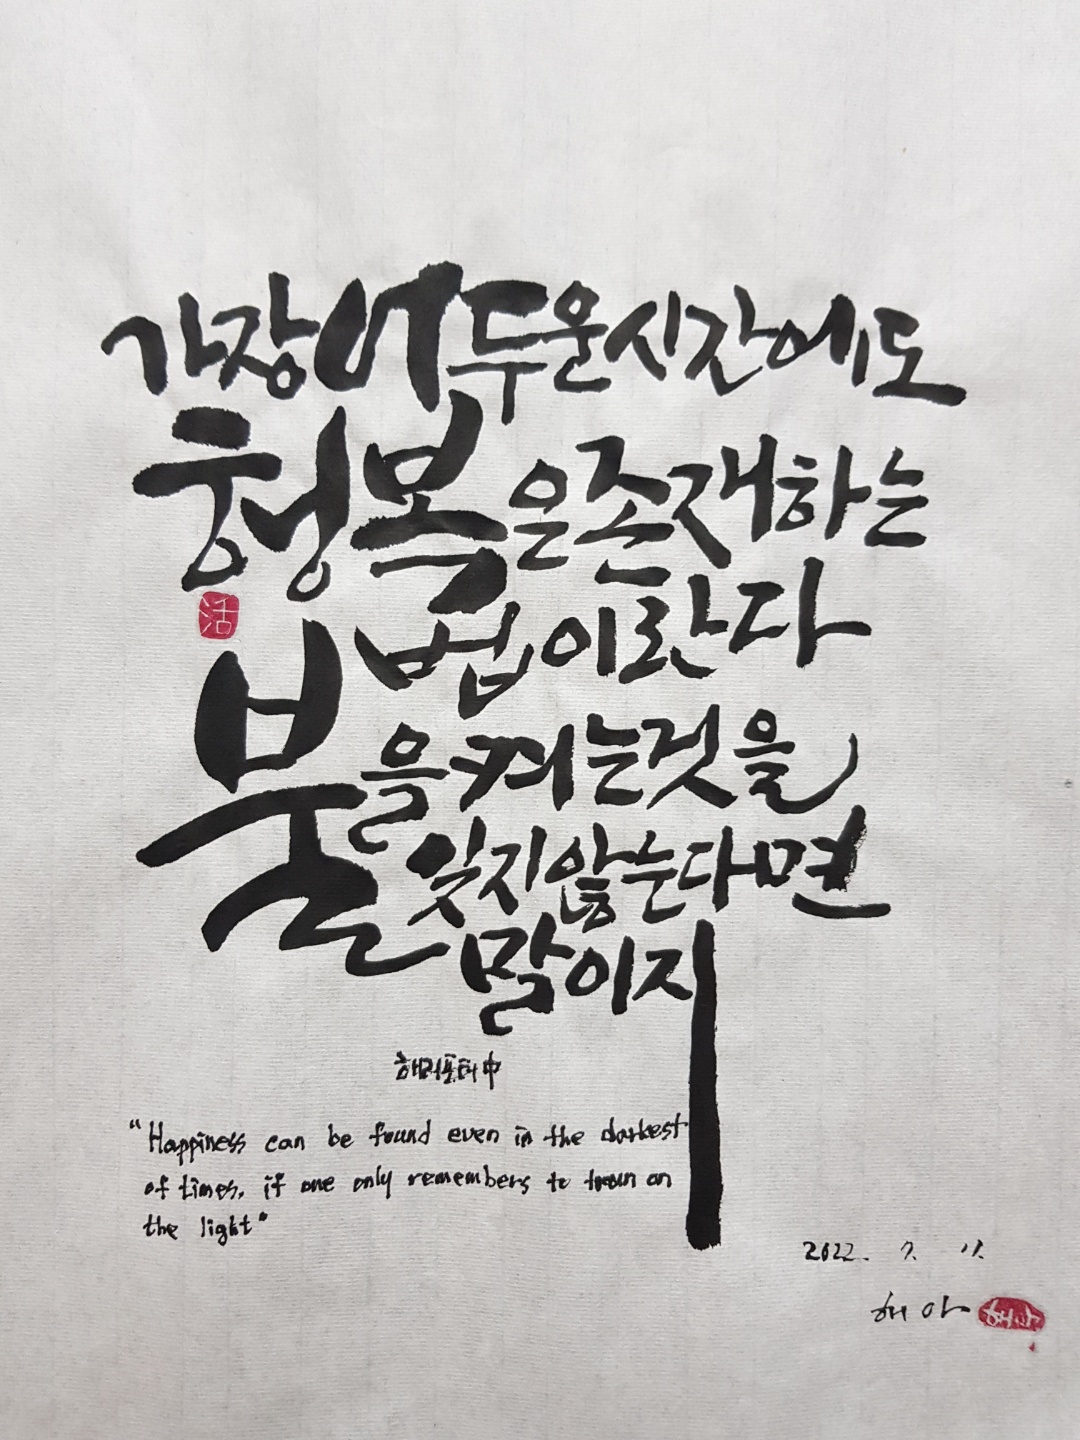 가장 어두운 시간에도
행복은 존재하는
법이란다
불을 켜는 것을
잊지 않는다면
말이지
해리포터 中
"Happiness can be found even in the darkest
of times, if one only remembers to
on
the light"
活
2022. 7. 11.
해아
해아